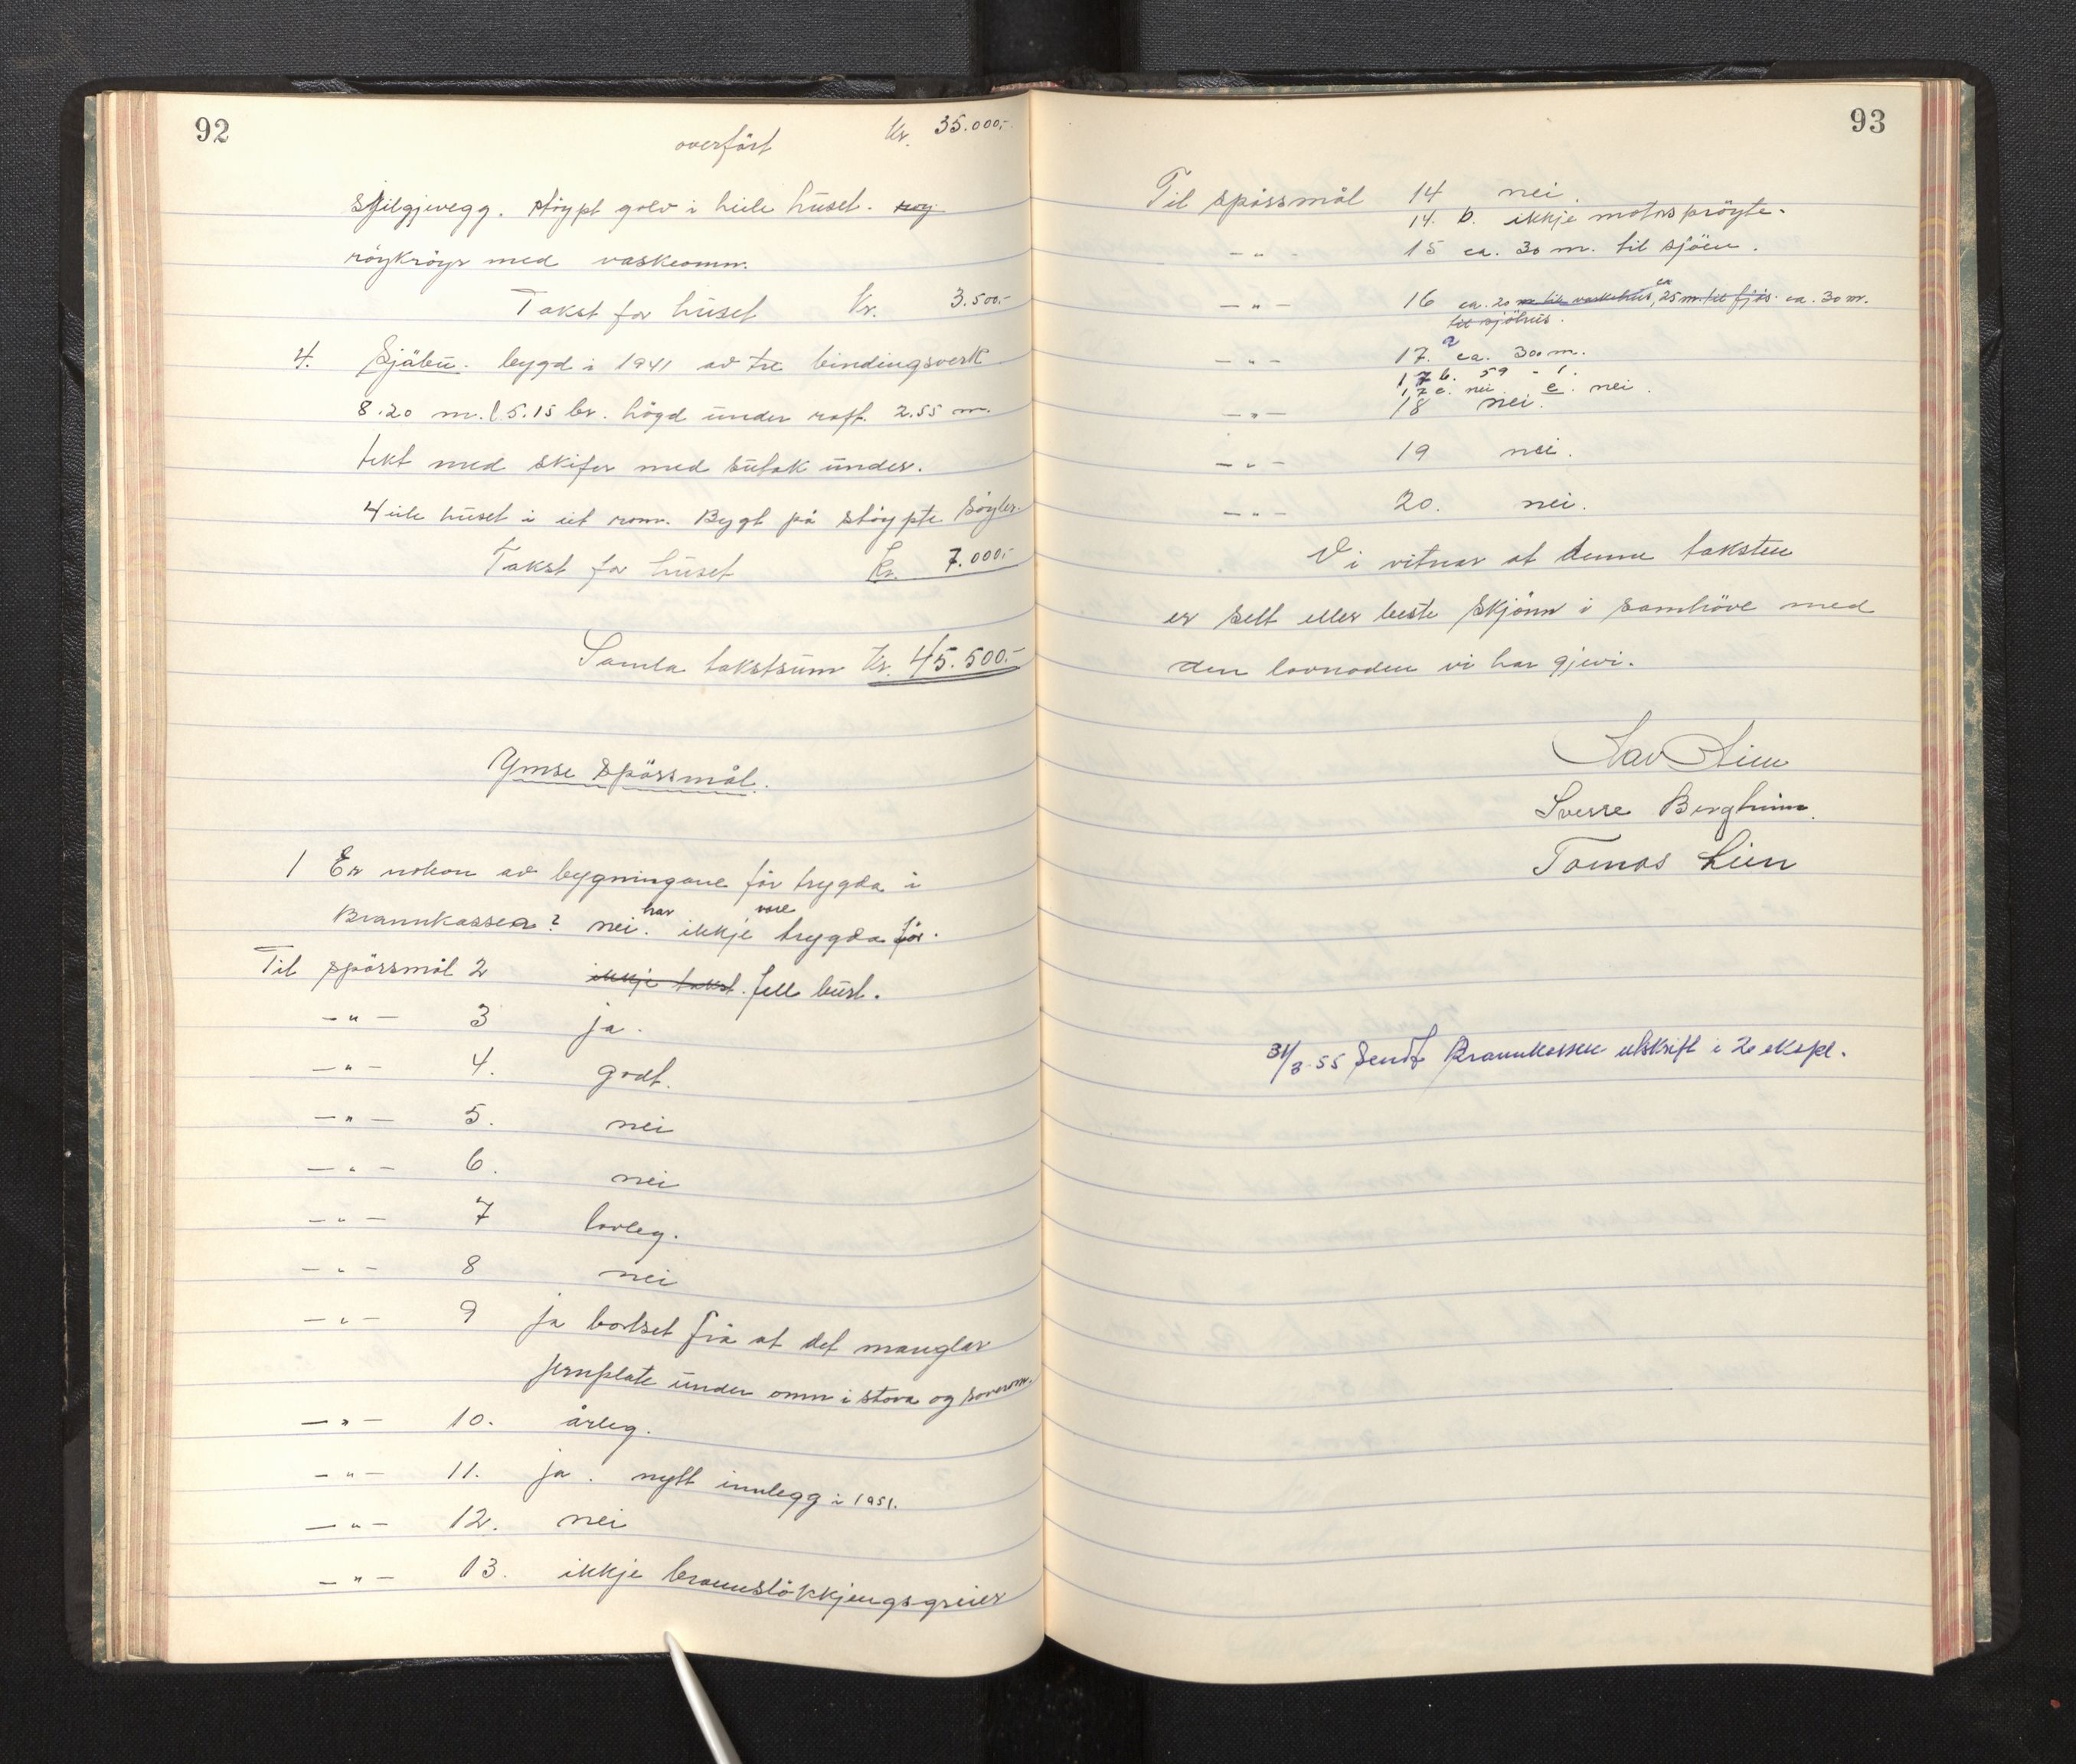 92
overført Kr. 35.000,-
skilgjevegg. støypt golv i heile huset. røy
røykrøyr med vaskeomn.
Takst for huset Kr. 3.500.-
4. Sjåbu. bygd i 1941 av tre bindingsverk
8.20 m. l 5.15 br. högd under raft. 2.55 m.
tekt med skifer med sutak under.
Heile huset i eit rom. Bygt på støypte søyler.
Takst for huset Kr. 7.000.-
Samla takstsum Kr. 45.500.-
Ymse spörsmål.
1 Er nokon av bygningane før trygda i
Brannkassen? nei. har ikkje vore trygda før.
Til spörsmål 2 ikkje takst. fell burt.
-"- 3 ja.
-"- 4. godt.
-"- 5. nei
-"- 6. nei
-"- 7 lovleg.
-"- 8 nei
-"- 9 ja bortset frå at det manglar
jernplate under omn i stova og soverom.
-"- 10. årleg.
-"- 11. ja. nytt innlegg i 1951.
-"- 12. nei
-"- 13. ikkje brannslökkjingsgreier
93
Til spörsmål 14 nei.
14. b. ikkje motorspröyte.
-"- 15 ca. 30 m. til sjöen.
-"- 16 ca. 20 m til vaskehus, ca 25 m. til fjös. ca. 30 m.
til sjöhus.
-"- 17. a ca. 300 m.
17 b. 59 - 1.
17 c. nei. e. nei.
-"- 18 nei.
-"- 19 nei.
-"- 20. nei.
Vi vitnar at denne taksten
er sett etter beste skjönn i samhöve med
den lovnaden vi har gjevi.
Lav Lien
Sverre Bergheim.
Tomas Lien
31/3-55 Sendt Brannkassen utskrift i 2 ekspl.